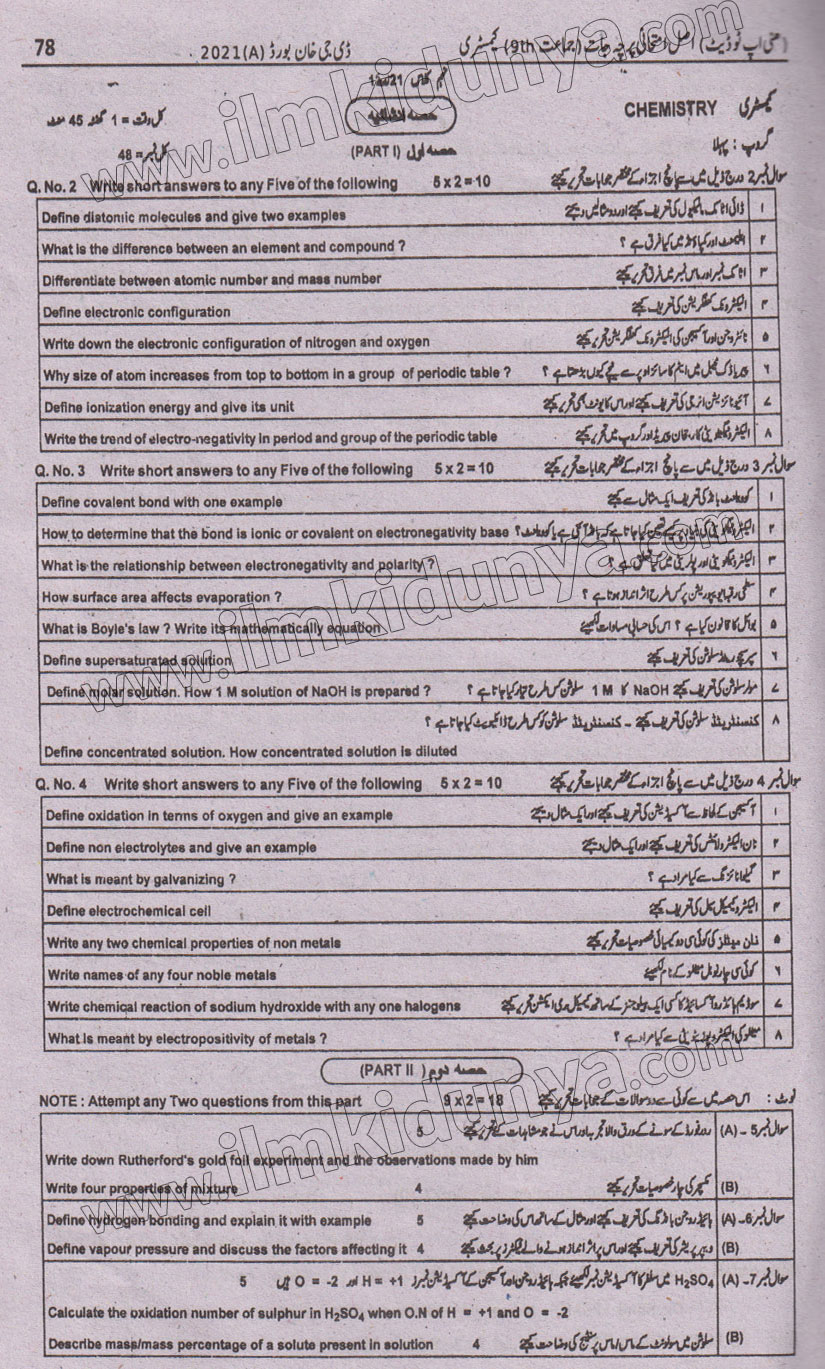 78 ڈی جی خان بورڈ 2021(A) (اپ ٹو ڈیٹ) اصل امتحانی پرچہ جات (جماعت 9th) کیمسٹری
کل وقت = 1 گھنٹہ 45 منٹ حصہ انشائیہ CHEMISTRY کیمسٹری
کل نمبر = 48 (PART I) حصہ اول گروپ : پہلا
Q. No. 2 Write short answers to any Five of the following 5 x 2 = 10 سوال نمبر 2 درج ذیل میں سے پانچ اجزاء کے مختصر جوابات تحریر کیجئے
Define diatomic molecules and give two examples ڈائی اٹامک مالیکیول کی تعریف کیجئے اور دو مثالیں دیجئے ۱
What is the difference between an element and compound ? ایلیمنٹ اور کمپاؤنڈ میں کیا فرق ہے ؟ ۲
Differentiate between atomic number and mass number اٹامک نمبر اور ماس نمبر میں فرق تحریر کیجئے ۳
Define electronic configuration الیکٹرونک کنفگریشن کی تعریف کیجئے ۴
Write down the electronic configuration of nitrogen and oxygen نائٹروجن اور آکسیجن کی الیکٹرونک کنفگریشن تحریر کیجئے ۵
Why size of atom increases from top to bottom in a group of periodic table ? پیریاڈک ٹیبل میں ایٹم کا سائز اوپر سے نیچے کیوں بڑھتا ہے ؟ ۶
Define ionization energy and give its unit آئیونائزیشن انرجی کی تعریف کیجئے اور اس کا یونٹ بھی تحریر کیجئے ۷
Write the trend of electro-negativity in period and group of the periodic table الیکٹرونیگٹیویٹی کا رجحان پیریڈ اور گروپ میں تحریر کیجئے ۸
Q. No. 3 Write short answers to any Five of the following 5 x 2 = 10 سوال نمبر 3 درج ذیل میں سے پانچ اجزاء کے مختصر جوابات تحریر کیجئے
Define covalent bond with one example کوویلنٹ بانڈ کی تعریف ایک مثال سے کیجئے ۱
How to determine that the bond is ionic or covalent on electronegativity base ۲
What is the relationship between electronegativity and polarity ? الیکٹرونیگٹیویٹی اور پولیریٹی میں کیا تعلق ہے ؟ ۳
How surface area affects evaporation ? سطحی رقبہ ایوپوریشن پر کس طرح اثر انداز ہوتا ہے ؟ ۴
What is Boyle's law ? Write its mathematically equation بوائل کا قانون کیا ہے ؟ اس کی حسابی مساوات لکھیئے ۵
Define supersaturated solution سپر سیچوریٹڈ سلوشن کی تعریف کیجئے ۶
Define molar solution. How 1 M solution of NaOH is prepared ? مولر سلوشن کی تعریف کیجئے NaOH کا 1 M سلوشن کس طرح تیار کیا جاتا ہے ؟ ۷
کنسنٹریٹڈ سلوشن کی تعریف کیجئے ۔ کنسنٹریٹڈ سلوشن کو کس طرح ڈائلیوٹ کیا جاتا ہے ؟ ۸
Define concentrated solution. How concentrated solution is diluted
Q. No. 4 Write short answers to any Five of the following 5 x 2 = 10 سوال نمبر 4 درج ذیل میں سے پانچ اجزاء کے مختصر جوابات تحریر کیجئے
Define oxidation in terms of oxygen and give an example آکسیجن کے لحاظ سے آکسیڈیشن کی تعریف کیجئے اور ایک مثال دیجئے ۱
Define non electrolytes and give an example نان الیکٹرولائٹس کی تعریف کیجئے اور ایک مثال دیجئے ۲
What is meant by galvanizing ? گیلوانائزنگ سے کیا مراد ہے ؟ ۳
Define electrochemical cell الیکٹروکیمیکل سیل کی تعریف کیجئے ۴
Write any two chemical properties of non metals نان میٹلز کی کوئی سی دو کیمیائی خصوصیات تحریر کیجئے ۵
Write names of any four noble metals کوئی سی چار نوبل میٹلز کے نام لکھیئے ۶
Write chemical reaction of sodium hydroxide with any one halogens سوڈیم ہائڈروآکسائیڈ کا کسی ایک ہیلوجنز کے ساتھ کیمیکل ری ایکشن تحریر کیجئے ۷
What is meant by electropositivity of metals ? میٹلز کی الیکٹروپوزیٹیویٹی سے کیا مراد ہے ؟ ۸
(PART II) حصہ دوم
NOTE : Attempt any Two questions from this part 9 x 2 = 18 نوٹ : اس حصہ میں سے کوئی سے دو سوالات کے جوابات تحریر کیجئے
5 ردرفورڈ کے سونے کے ورق والا تجربہ اور اس نے جو مشاہدات کئے تحریر کیجئے سوال نمبر 5- (A)
Write down Rutherford's gold foil experiment and the observations made by him
Write four properties of mixture 4 مکسچر کی چار خصوصیات تحریر کیجئے (B)
Define hydrogen bonding and explain it with example 5 ہائیڈروجن بانڈنگ کی تعریف کیجئے اور مثال کے ساتھ اس کی وضاحت کیجئے سوال نمبر 6- (A)
Define vapour pressure and discuss the factors affecting it 4 ویپر پریشر کی تعریف کیجئے اور اس پر اثر انداز ہونے والے فیکٹرز پر بحث کیجئے (B)
5 H₂SO₄ میں سلفر کا آکسیڈیشن نمبر لکھیئے جبکہ ہائیڈروجن اور آکسیجن کے آکسیڈیشن نمبرز H = +1 اور O = -2 ہیں سوال نمبر 7- (A)
Calculate the oxidation number of sulphur in H₂SO₄ when O.N of H = +1 and O = -2
Describe mass/mass percentage of a solute present in solution 4 سلوشن میں سولیوٹ کے ماس/ماس پرسنٹیج کی وضاحت کیجئے (B)
www.ilmkidunya.com
www.ilmkidunya.com
www.ilmkidunya.com